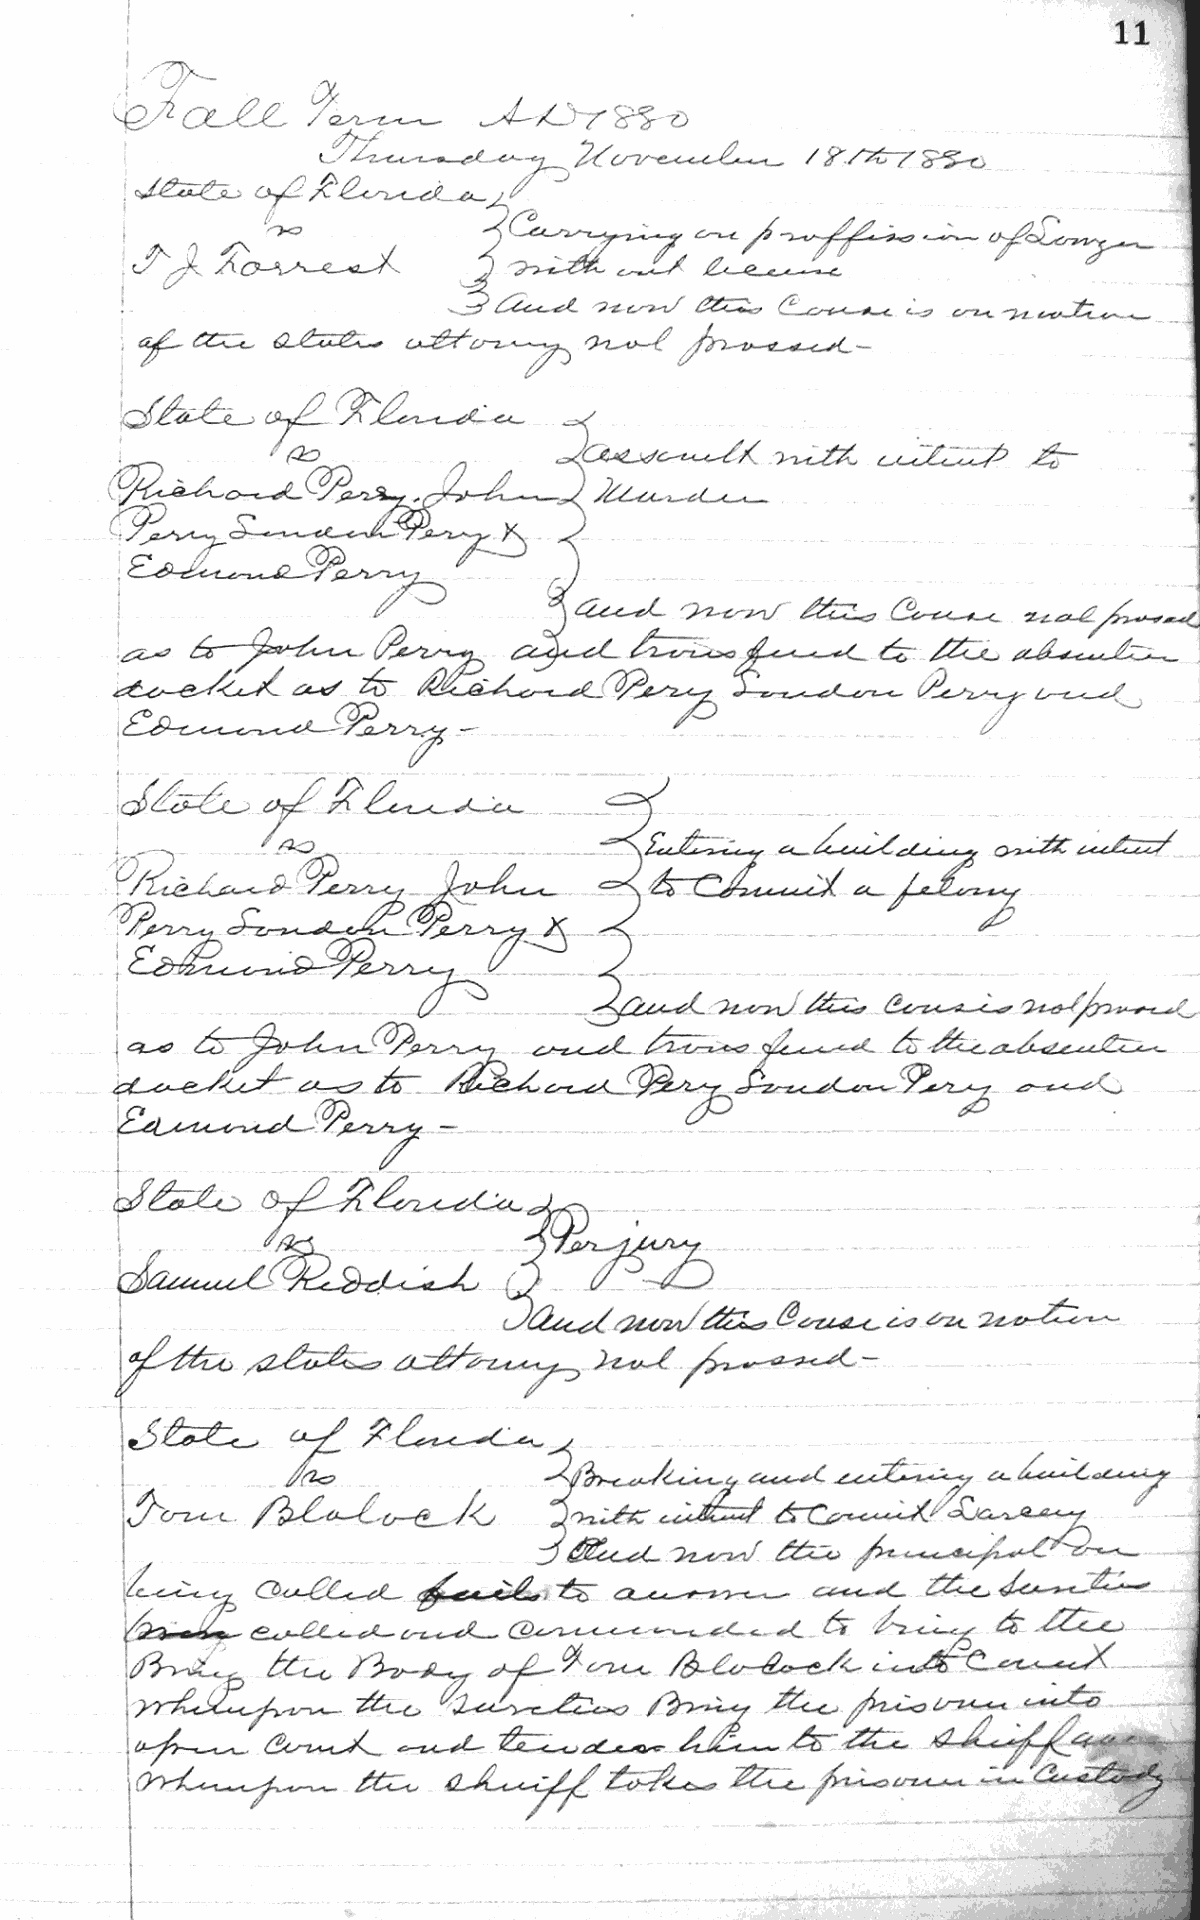 11
Fall Term AD 1880
Thursday November 18th 1880
State of Florida
vs
Carrying on proffission of Lowyer
T J Forrest
with out license
and now this Couse is on motion
of the states attorney nol prossed-
State of Florida
vs
assault with intent to
Richard Perry. John Murder
Perry London Perry &
Edmond Perry
and now this Couse nol prosed
as to John Perry and transfered to the absentee
docket as to Richard Perry London Perry and
Edmond Perry-
State of Florida
vs
Entering a building with intent
Richard Perry John to Commit a felony
Perry London Perry &
Edmond Perry
and now this Couse is nol prosed
as to John Perry and transfered to the absentee
docket as to Richard Perry London Perry and
Edmond Perry-
State of Florida
vs Perjury
Samuel Reddish
and now this Couse is on motion
of the states attorney nol prossed-
State of Florida
vs Breaking and entering a building
Tom Blalock with intent to Commit Larceny
And now the principal on
being called fails to answer and the Sureties
called and commanded to bring to the
Bring the Body of Tom Blalock into Court
Whereupon the Sureties Bring the prisoner into
open Court and tenders him to the Sheriff
Whereupon the Sheriff takes the prisoner in Custody